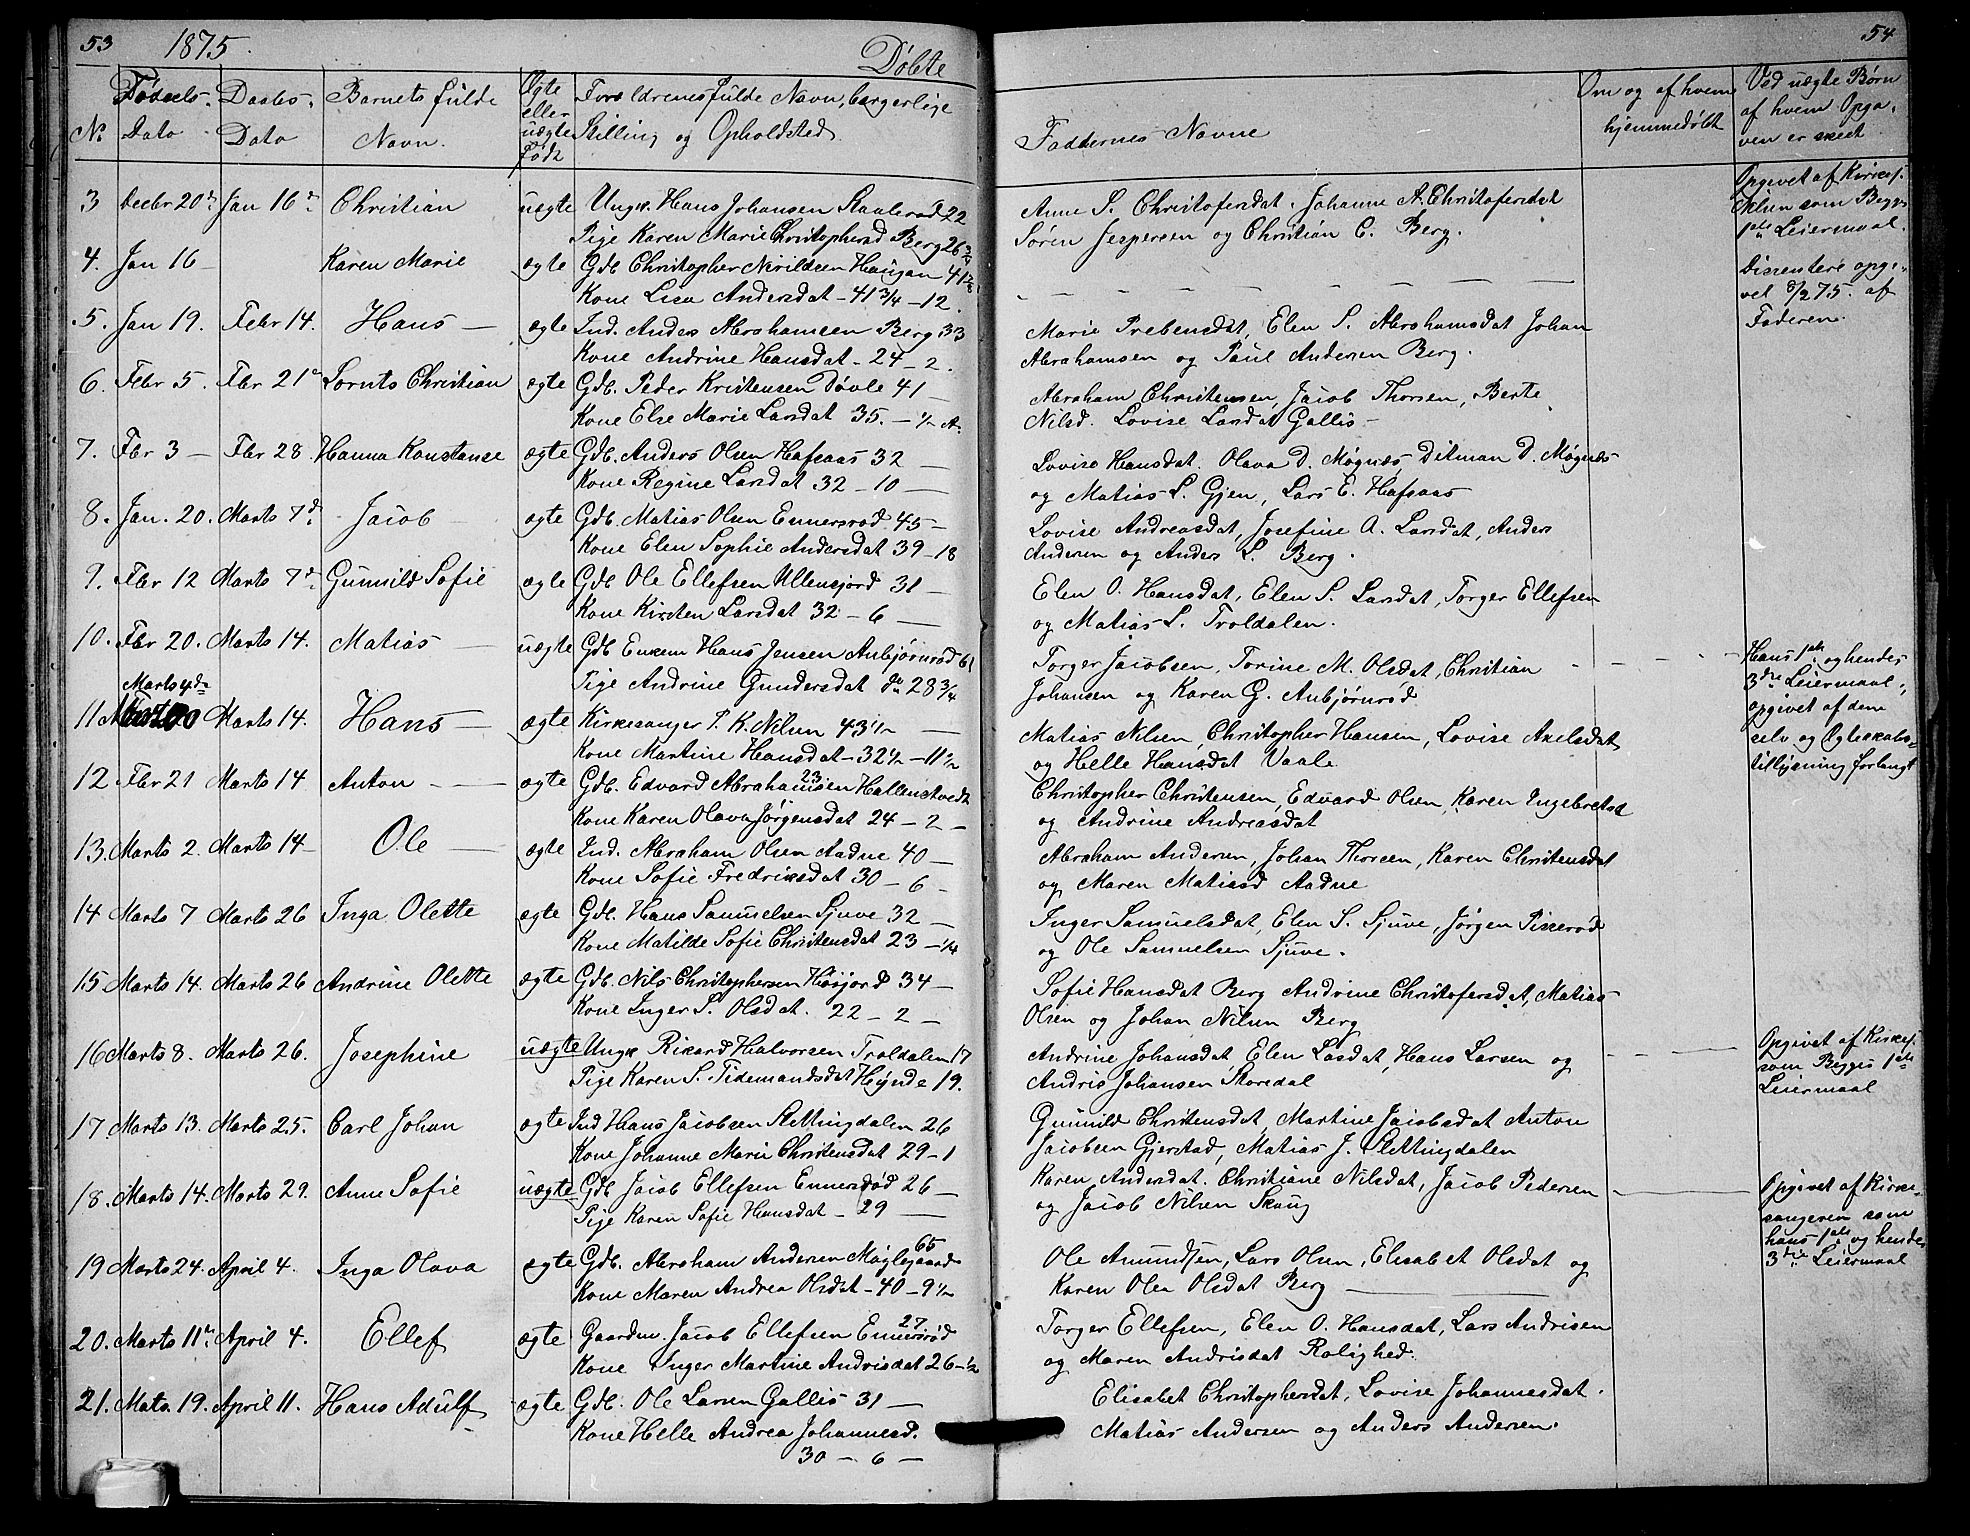 53 1875. Døbte
No. Fødsels-Dato Daabs-Dato Barnets fulde Navn. Ægte eller uægte Født Forældrenes fulde Navn, borgerlige Stilling og Opholdsted.
3 Decbr 20de Jan 16de Christian uægte Ungk. Hans Johansen 22
Pige Karen Marie Christophersd Berg 26 3/4
4. Jan 16 — Karen Marie ægte Gdb Christopher Haugan 41
Kone Lisa Andersdat – 41 3/4 – 12.
5. Jan 19. Febr 14. Hans — ægte Ind. Anders Abrahamsen Berg 33
Kone Andrine Hansdat – 24 – 2.
6. Febr 5. Fbr 21de Lornts Christian ægte Gdb. Peder Kristensen Døvle 41 —
Kone Else Marie Larsdat 35. – 1/2 A.
7. Fbr 3 — Fbr 28. Hanna Konstanse ægte Gdb. Anders Olsen Hafsaas 32 —
Kone Regine Larsdat 32 – 10 —
8. Jan. 20. Marts 7d. Jacob — ægte Gdb. Matias Olsen Ennersrød 45 –
Kone Elen Sophie Andersdat 39 – 18
9. Fbr 12 Marts 7d. Gunnild Sofie ægte Gdb Ole Ellefsen Ullensjord 31 —
Kone Kirsten Larsdat 32 – 6 —
10. Fbr 20. Marts 14. Matias — uægte Gdb Enkem Hans Jensen Anbjørnrød 61
Pige Andrine Gundersdat do 28 3/4
Marts 4de
11 Marts 14. Hans — ægte Kirkesanger P. K. Nilsen 43 1/2 —
Kone Martine Hansdat – 32 1/2 – 11 1/2
12 Fbr 21 Marts 14 Anton — ægte Gdb. Edvard Abrahamsen 23 Hallenstvedt
Kone Karen Olava Jørgensdat 24 – 2 –
13. Marts 2. Marts 14 – Ole — ægte Ind. Abraham Olsen Aadne 40 —
Kone Sofie Fredriksdat 30 – 6 –
14 Marts 7 Marts 26 Inga Olette ægte Gdb. Hans Samuelsen Sjuve 32 —
Kone Matilde Sofie Christensdat 23 – 1/4
15 Marts 14. Marts 26 Andrine Olette ægte Gdb. Nils Christophersen Høsjord 34 –
Kone Inger S. Olsdat. 22 – 2 —
16 Marts 8. Marts 26. Josephine uægte Ungk Rikard Halvorsen Troldalen 17
Pige Karen S. Tidemandsdat Hynde 19.
17 Marts 13. Marts 25. Carl Johan ægte Ind Hans Jacobsen Slettingdalen 26
Kone Johanne Marie Christensdat 29 – 1
18. Marts 14. Marts 29. Anne Sofie uægte Gdb Jacob Ellefsen Ennersrød 26 —
Pige Karen Sofie Hansdat – 29 —
19 Marts 24. April 4. Inga Olava ægte Gdb. Abraham Andersen Møglegaard 65
Kone Maren Andrea Olsdat – 40 – 9 1/2
20. Marts 11te April 4. Ellef ægte Gaardm. Jacob Ellefsen Ennersrød 27
Kone Inger Martine Andrisdat 26 – 1/2
21. Mats 19. April 11. Hans Adulf ægte Gdb. Ole Larsen Gallis 31 —
Kone Helle Andrea Johannesd.
30 – 6 –
54
Faddernes Navne
Om og af hvem hjemmedøbt
Ved uægte Børn af hvem Opgaven er skeet.
Anne S. Christofersdat. Johanne A. Christofersdat
Søren Jespersen og Christian C. Berg.
Opgivet af Kirkes.
som Begges
1ste Leiermaal.
Dissentere opgi-
vet 8/2 75. af
Faderen.
Marie Prebensdat, Elen S. Abrahamsdat Johan
Abrahamsen og Paul Andersen Berg.
Abraham Christensen, Jacob Thorsen, Berte
Nilsd. Lovise Larsdat Gallis –
Lovise Hansdat. Olava D. Møgnæs, Ditman D. Møgnæs
og Matias L. Gjen, Lars E. Hafsaas
Lovise Andreasdat, Josefine A. Larsdat, Anders
Andersen og Anders L. Berg.
Elen O. Hansdat, Elen S. Larsdat, Torger Ellefsen
og Matias L. Troldalen.
Torger Jacobsen, Torine M. Olsdat, Christian
Johansen og Karen G. Anbjørnrød
Hans 1ste og hendes
3die Leiermaal,
opgivet af dem
selv og Ægteskabs-
tillysning forlangt
Matias Nilsen, Christopher Hansen, Lovise Axelsdat
og Helle Hansdat Vaale
Christopher Christensen, Edvard Olsen, Karen Ingebretsd
og Andrine Andreasdat
Abraham Andersen, Johan Thorsen, Karen Christensdat
og Maren Matiasd Aadne
Inger Samuelsdat, Elen S. Sjuve, Jørgen Piskerød
og Ole Samuelsen Sjuve.
Sofie Hansdat Berg Andrine Christofersdat, Matias
Olsen og Johan Nilsen Berg
Andrine Johansdat, Elen Lasdat, Hans Larsen og
Andris Johansen Storedal
Opgivet af Kirkes.
som Begges 1ste
Leiermaal
Gunnild Christensdat, Martine Jacobsdat Anton
Jacobsen Gjerstad, Matias J. Slettingdalen
Karen Andersdat. Christiane Nilsdat, Jacob Pedersen
og Jacob Nilsen Skaug
Opgivet af Kirke-
sangeren som
hans 1ste og hendes
3die Leiermaal
Ole Amundsen, Lars Olsen, Elisabet Olsdat og
Karen Olea Olsdat Berg
Torger Ellefsen, Elen O. Hansdat, Lars Andrisen
og Maren Andrisdat Rolighed.
Elisabet Christophersdat, Lovise Johannesdat.
Matias Andersen og Anders Andersen.